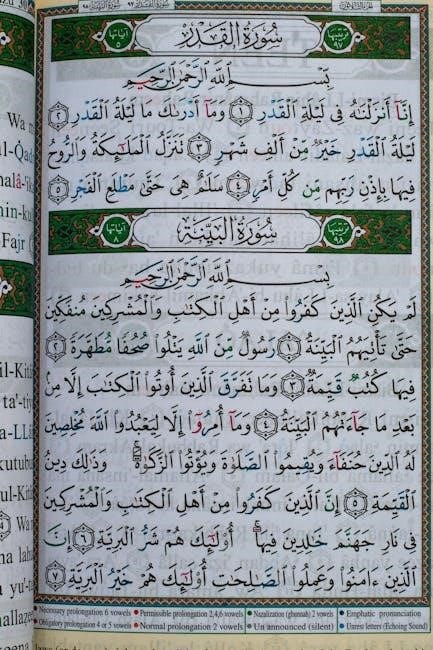 سُورَةُ الْقَدْرِ
ترتيبها ٩٧
آياتها ٥
بِسْمِ اللَّهِ الرَّحْمَٰنِ الرَّحِيمِ
إِنَّآ أَنزَلْنَٰهُ فِى لَيْلَةِ الْقَدْرِ ١ وَمَآ أَدْرَىٰكَ مَا لَيْلَةُ الْقَدْرِ ٢
لَيْلَةُ الْقَدْرِ خَيْرٌ مِّنْ أَلْفِ شَهْرٍ ٣ تَنَزَّلُ الْمَلَٰٓئِكَةُ وَالرُّوحُ
فِيهَا بِإِذْنِ رَبِّهِم مِّن كُلِّ أَمْرٍ ٤ سَلَٰمٌ هِىَ حَتَّىٰ مَطْلَعِ الْفَجْرِ ٥
سُورَةُ الْبَيِّنَةِ
ترتيبها ٩٨
آياتها ٨
بِسْمِ اللَّهِ الرَّحْمَٰنِ الرَّحِيمِ
لَمْ يَكُنِ الَّذِينَ كَفَرُوا مِنْ أَهْلِ الْكِتَٰبِ وَالْمُشْرِكِينَ مُنفَكِّينَ
حَتَّىٰ تَأْتِيَهُمُ الْبَيِّنَةُ ١ رَسُولٌ مِّنَ اللَّهِ يَتْلُوا صُحُفًا مُّطَهَّرَةً ٢
فِيهَا كُتُبٌ قَيِّمَةٌ ٣ وَمَا تَفَرَّقَ الَّذِينَ أُوتُوا الْكِتَٰبَ إِلَّا مِنۢ
بَعْدِ مَا جَآءَتْهُمُ الْبَيِّنَةُ ٤ وَمَآ أُمِرُوٓا إِلَّا لِيَعْبُدُوا اللَّهَ مُخْلِصِينَ
لَهُ الدِّينَ حُنَفَآءَ وَيُقِيمُوا الصَّلَوٰةَ وَيُؤْتُوا الزَّكَوٰةَ وَذَٰلِكَ دِينُ
الْقَيِّمَةِ ٥ إِنَّ الَّذِينَ كَفَرُوا مِنْ أَهْلِ الْكِتَٰبِ وَالْمُشْرِكِينَ
فِى نَارِ جَهَنَّمَ خَٰلِدِينَ فِيهَآ أُو۟لَٰٓئِكَ هُمْ شَرُّ الْبَرِيَّةِ ٦ إِنَّ
الَّذِينَ ءَامَنُوا وَعَمِلُوا الصَّٰلِحَٰتِ أُو۟لَٰٓئِكَ هُمْ خَيْرُ الْبَرِيَّةِ ٧
Necessary prolongation 6 vowels • Permissible prolongation 2,4,6 vowels • Nazalization (ghunnah) 2 vowels • Emphatic pronunciation
Obligatory prolongation 4 or 5 vowels • Normal prolongation 2 vowels • Un announced (silent) • Unrest letters (Echoing Sound)